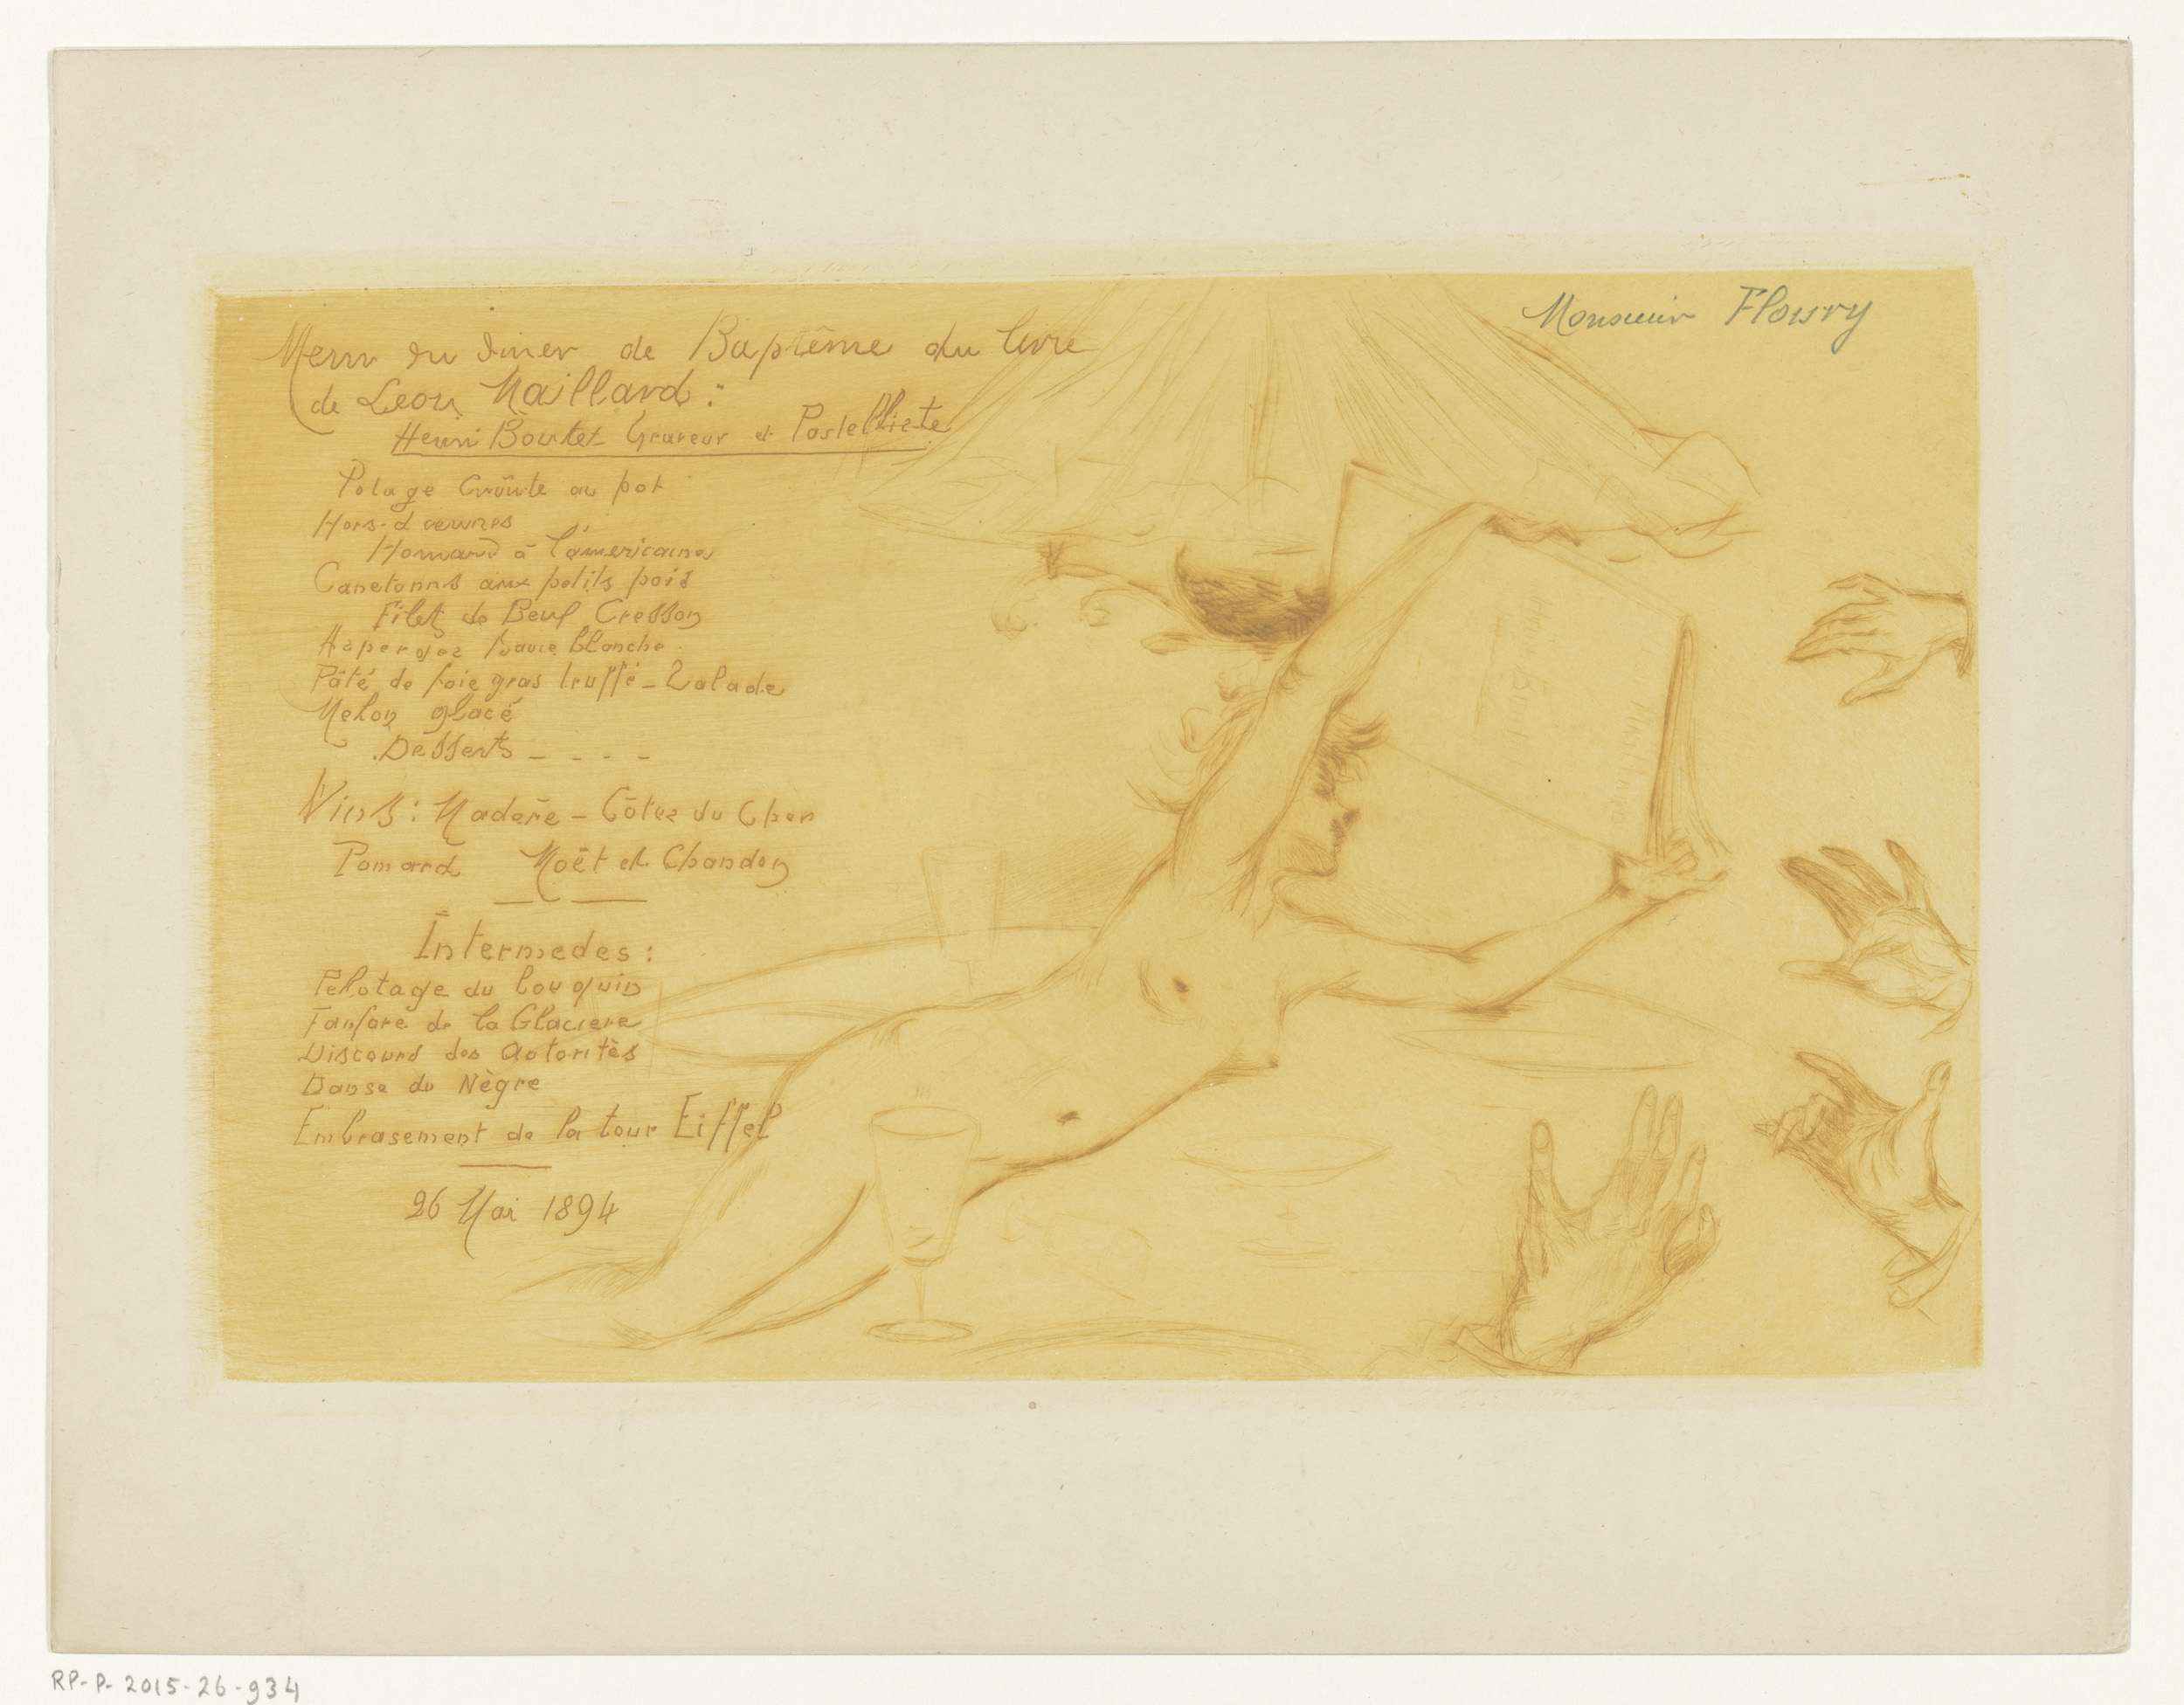 Menu du diner de Baptême du livre
de Leon Maillard :
Henri Boutet Graveur et Pastelliste
Potage Croûte au pot
Hors-d'œuvres
Homard à l'americaine
Canetonns aux petits pois
Filet de Beuf Cresson
Asperges Sauce Blanche
Pâté de foie gras truffé - Salade
Melon glacé
Desserts - - - -
Vins : Madère - Côtes du Cher
Pomard Moët et Chandon
Intermedes :
Pelotage du bouquin
Fanfare de la Glaciere
Discours des Autorités
Danse du Nègre
Embrasement de la tour Eiffel
26 Mai 1894
Monsieur Floury
Henri Boutet
RP-P-2015-26-934